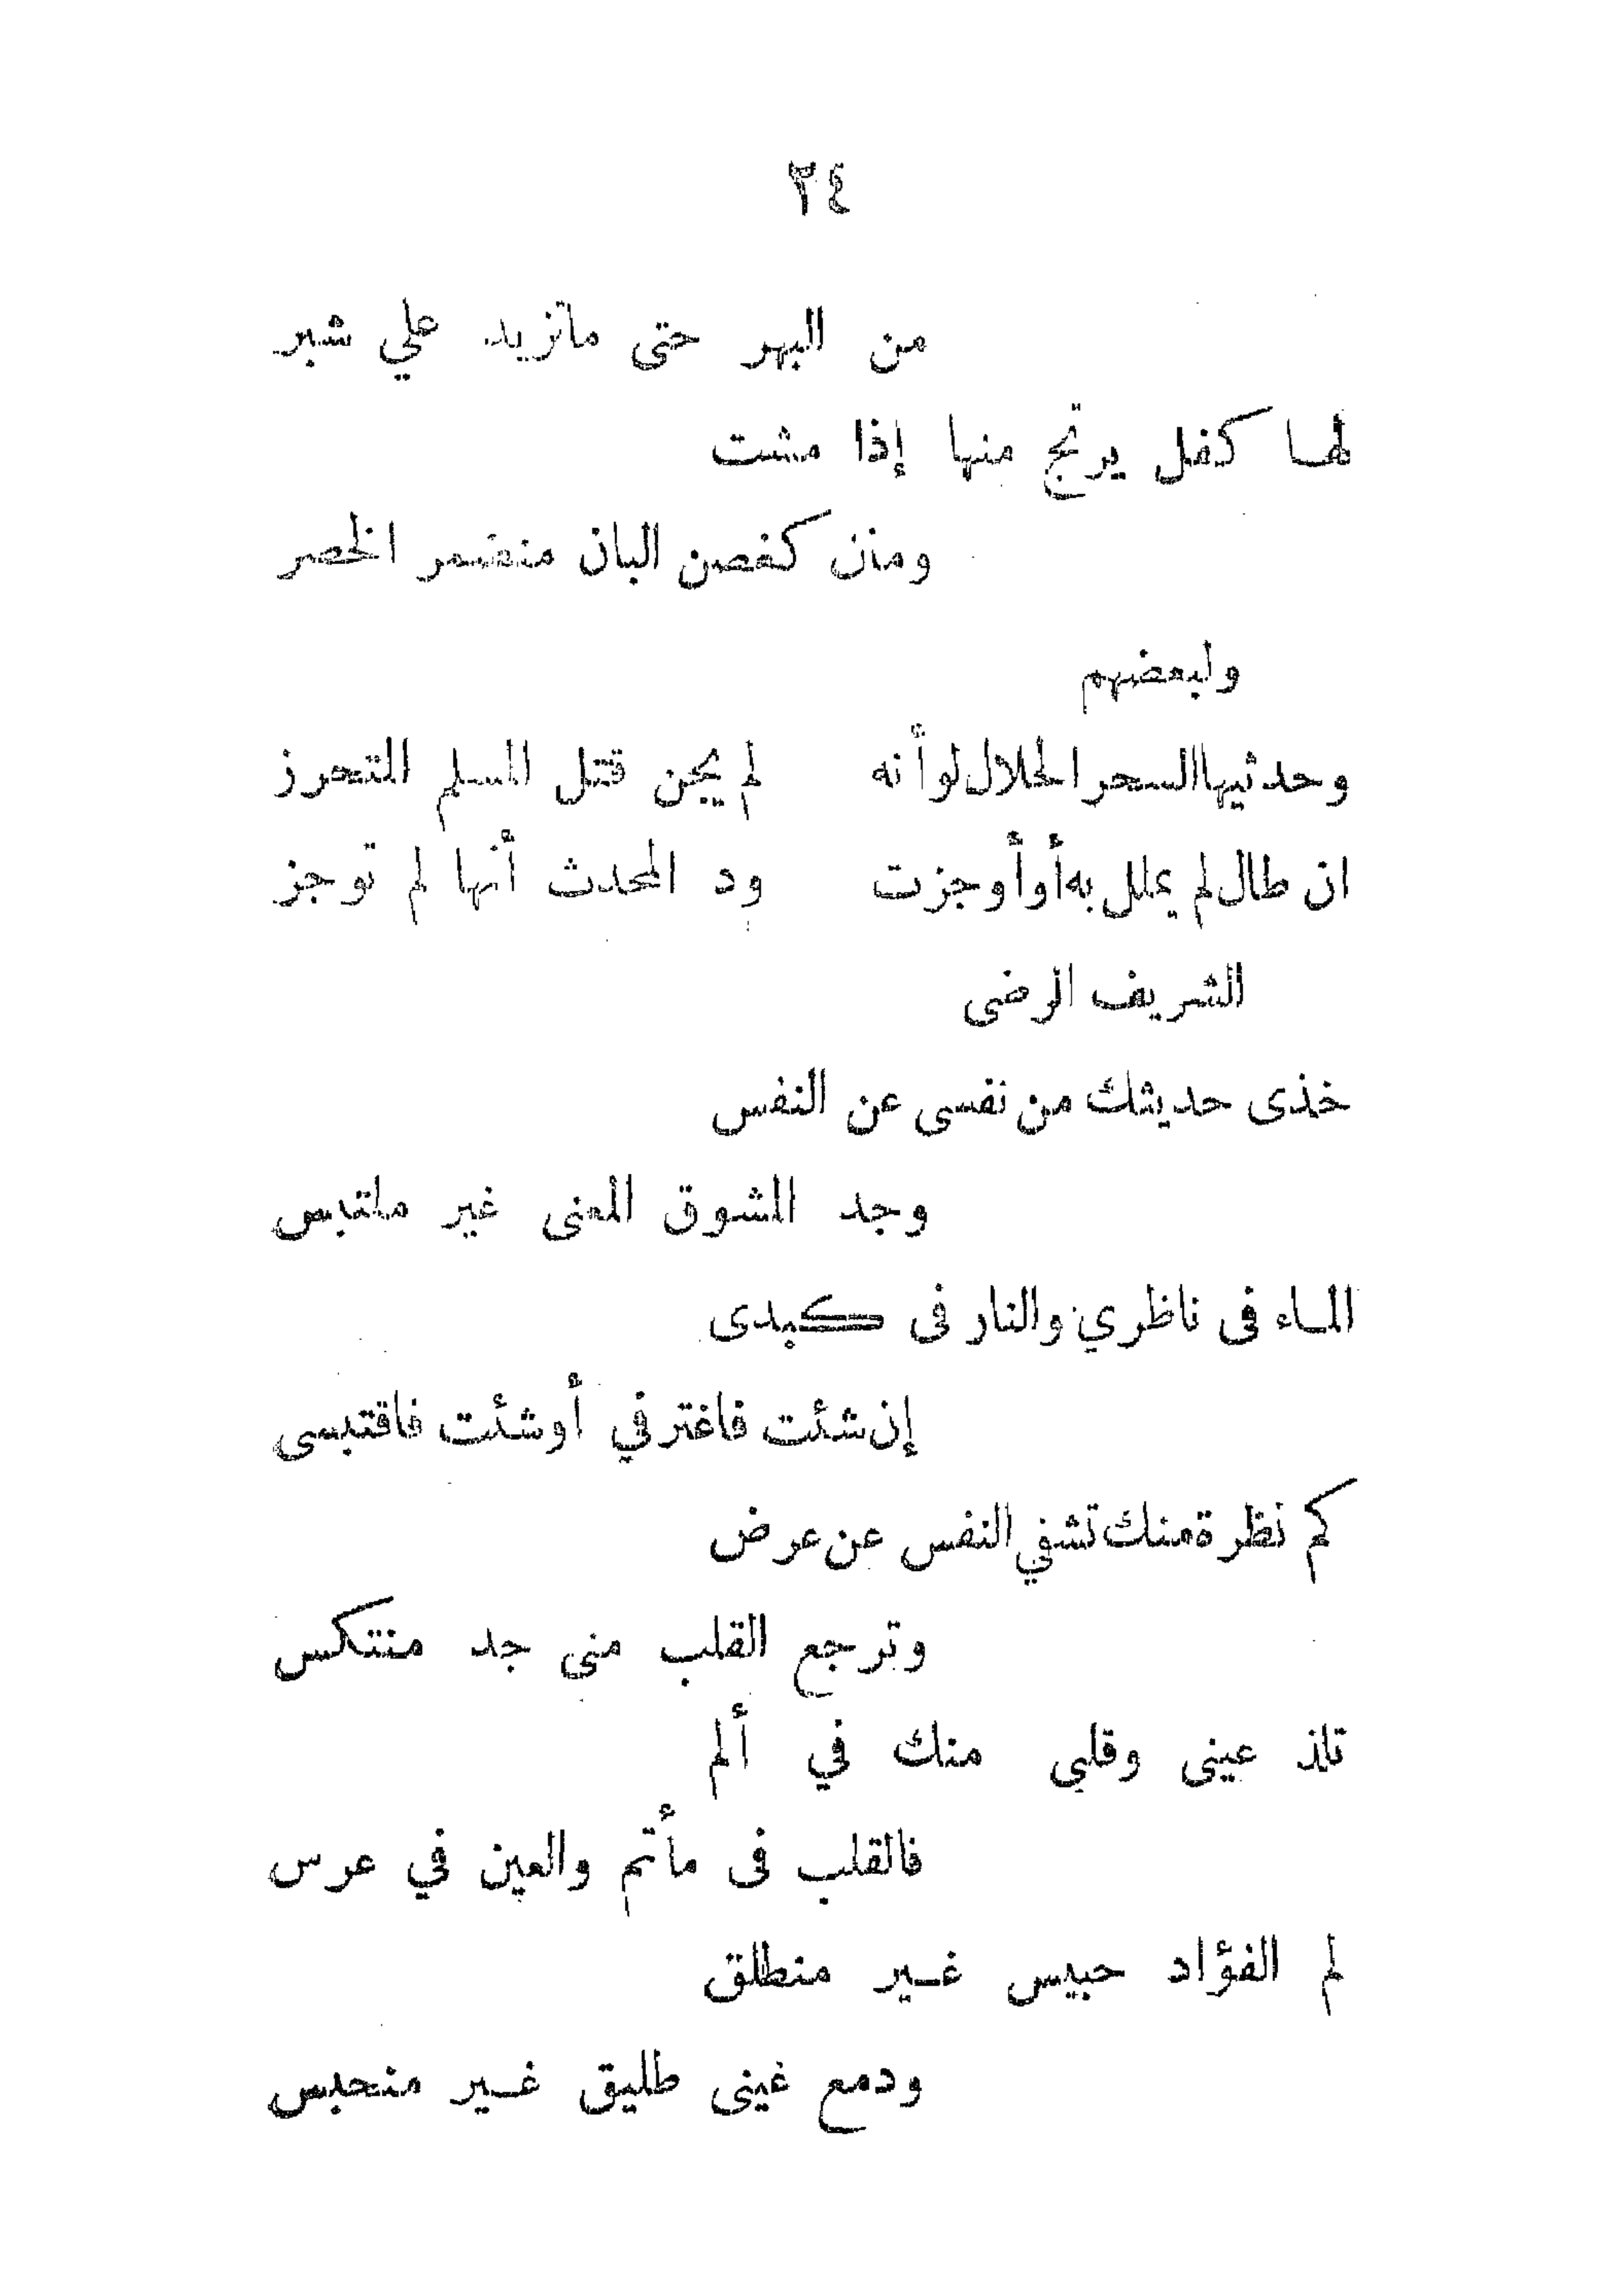 ٣٤
من البهر حتى ماتزيد علي شبر
لها كفل يرتج منها إذا مشت
ومتن كغصن البان منضمر الخصر
ولبعضهم
وحدثيها السحر الحلال لو أنه لم يجن قتل المسلم المتحرز
ان طال لم يملل به أو أوجزت ود المحدث أنها لم توجز
الشريف الرضى
خذى حديثك من نفسى عن النفس
وجد المشوق المعنى غير ملتبس
الماء فى ناظري والنار فى كبدى
إن شئت فاغترفي أوشئت فاقتبسى
كم نظرة منك تشفي النفس عن عرض
وترجع القلب منى جد منتكس
تلذ عينى وقلبى منك في ألم
فالقلب فى مأتم والعين في عرس
لم الفؤاد حبيس غير منطلق
ودمع عينى طليق غير منحبس